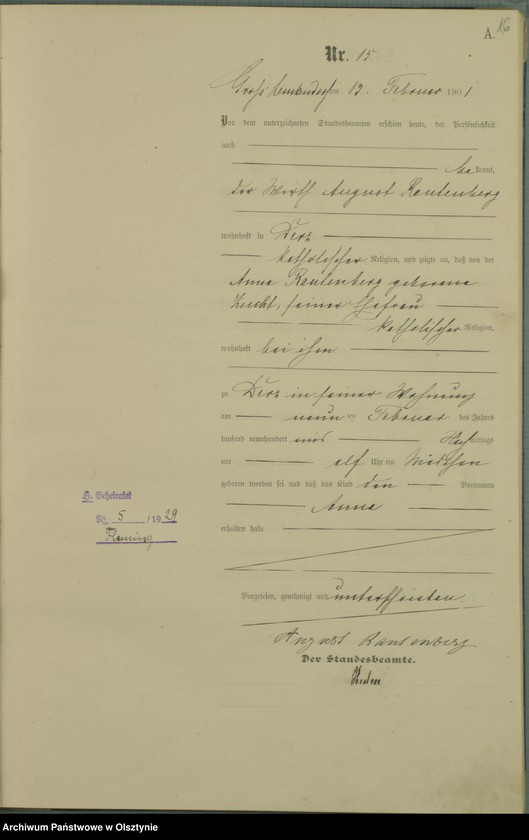 A.
16
Nr. 15
am 12. Februar 1901.
Vor dem unterzeichneten Standesbeamten erschien heute, der Persönlichkeit
nach
bekannt,
der Wirth August Rautenberg
wohnhaft in Derz
katholischer Religion, und zeigte an, daß von der
Anna Rautenberg geborene
seiner Ehefrau
katholischer Religion,
wohnhaft bei ihm
zu Derz in seiner Wohnung
am neunten Februar des Jahres
tausend neunhundert eins mittags
um elf Uhr ein Mädchen
geboren worden sei und daß das Kind den Vornamen
Anna
erhalten habe
Vorgelesen, genehmigt und unterschrieben
August Rautenberg
Der Standesbeamte.
H. Geheiratet
Nr. 5 / 1929
Fleming
Archiwum Państwowe w Olsztynie